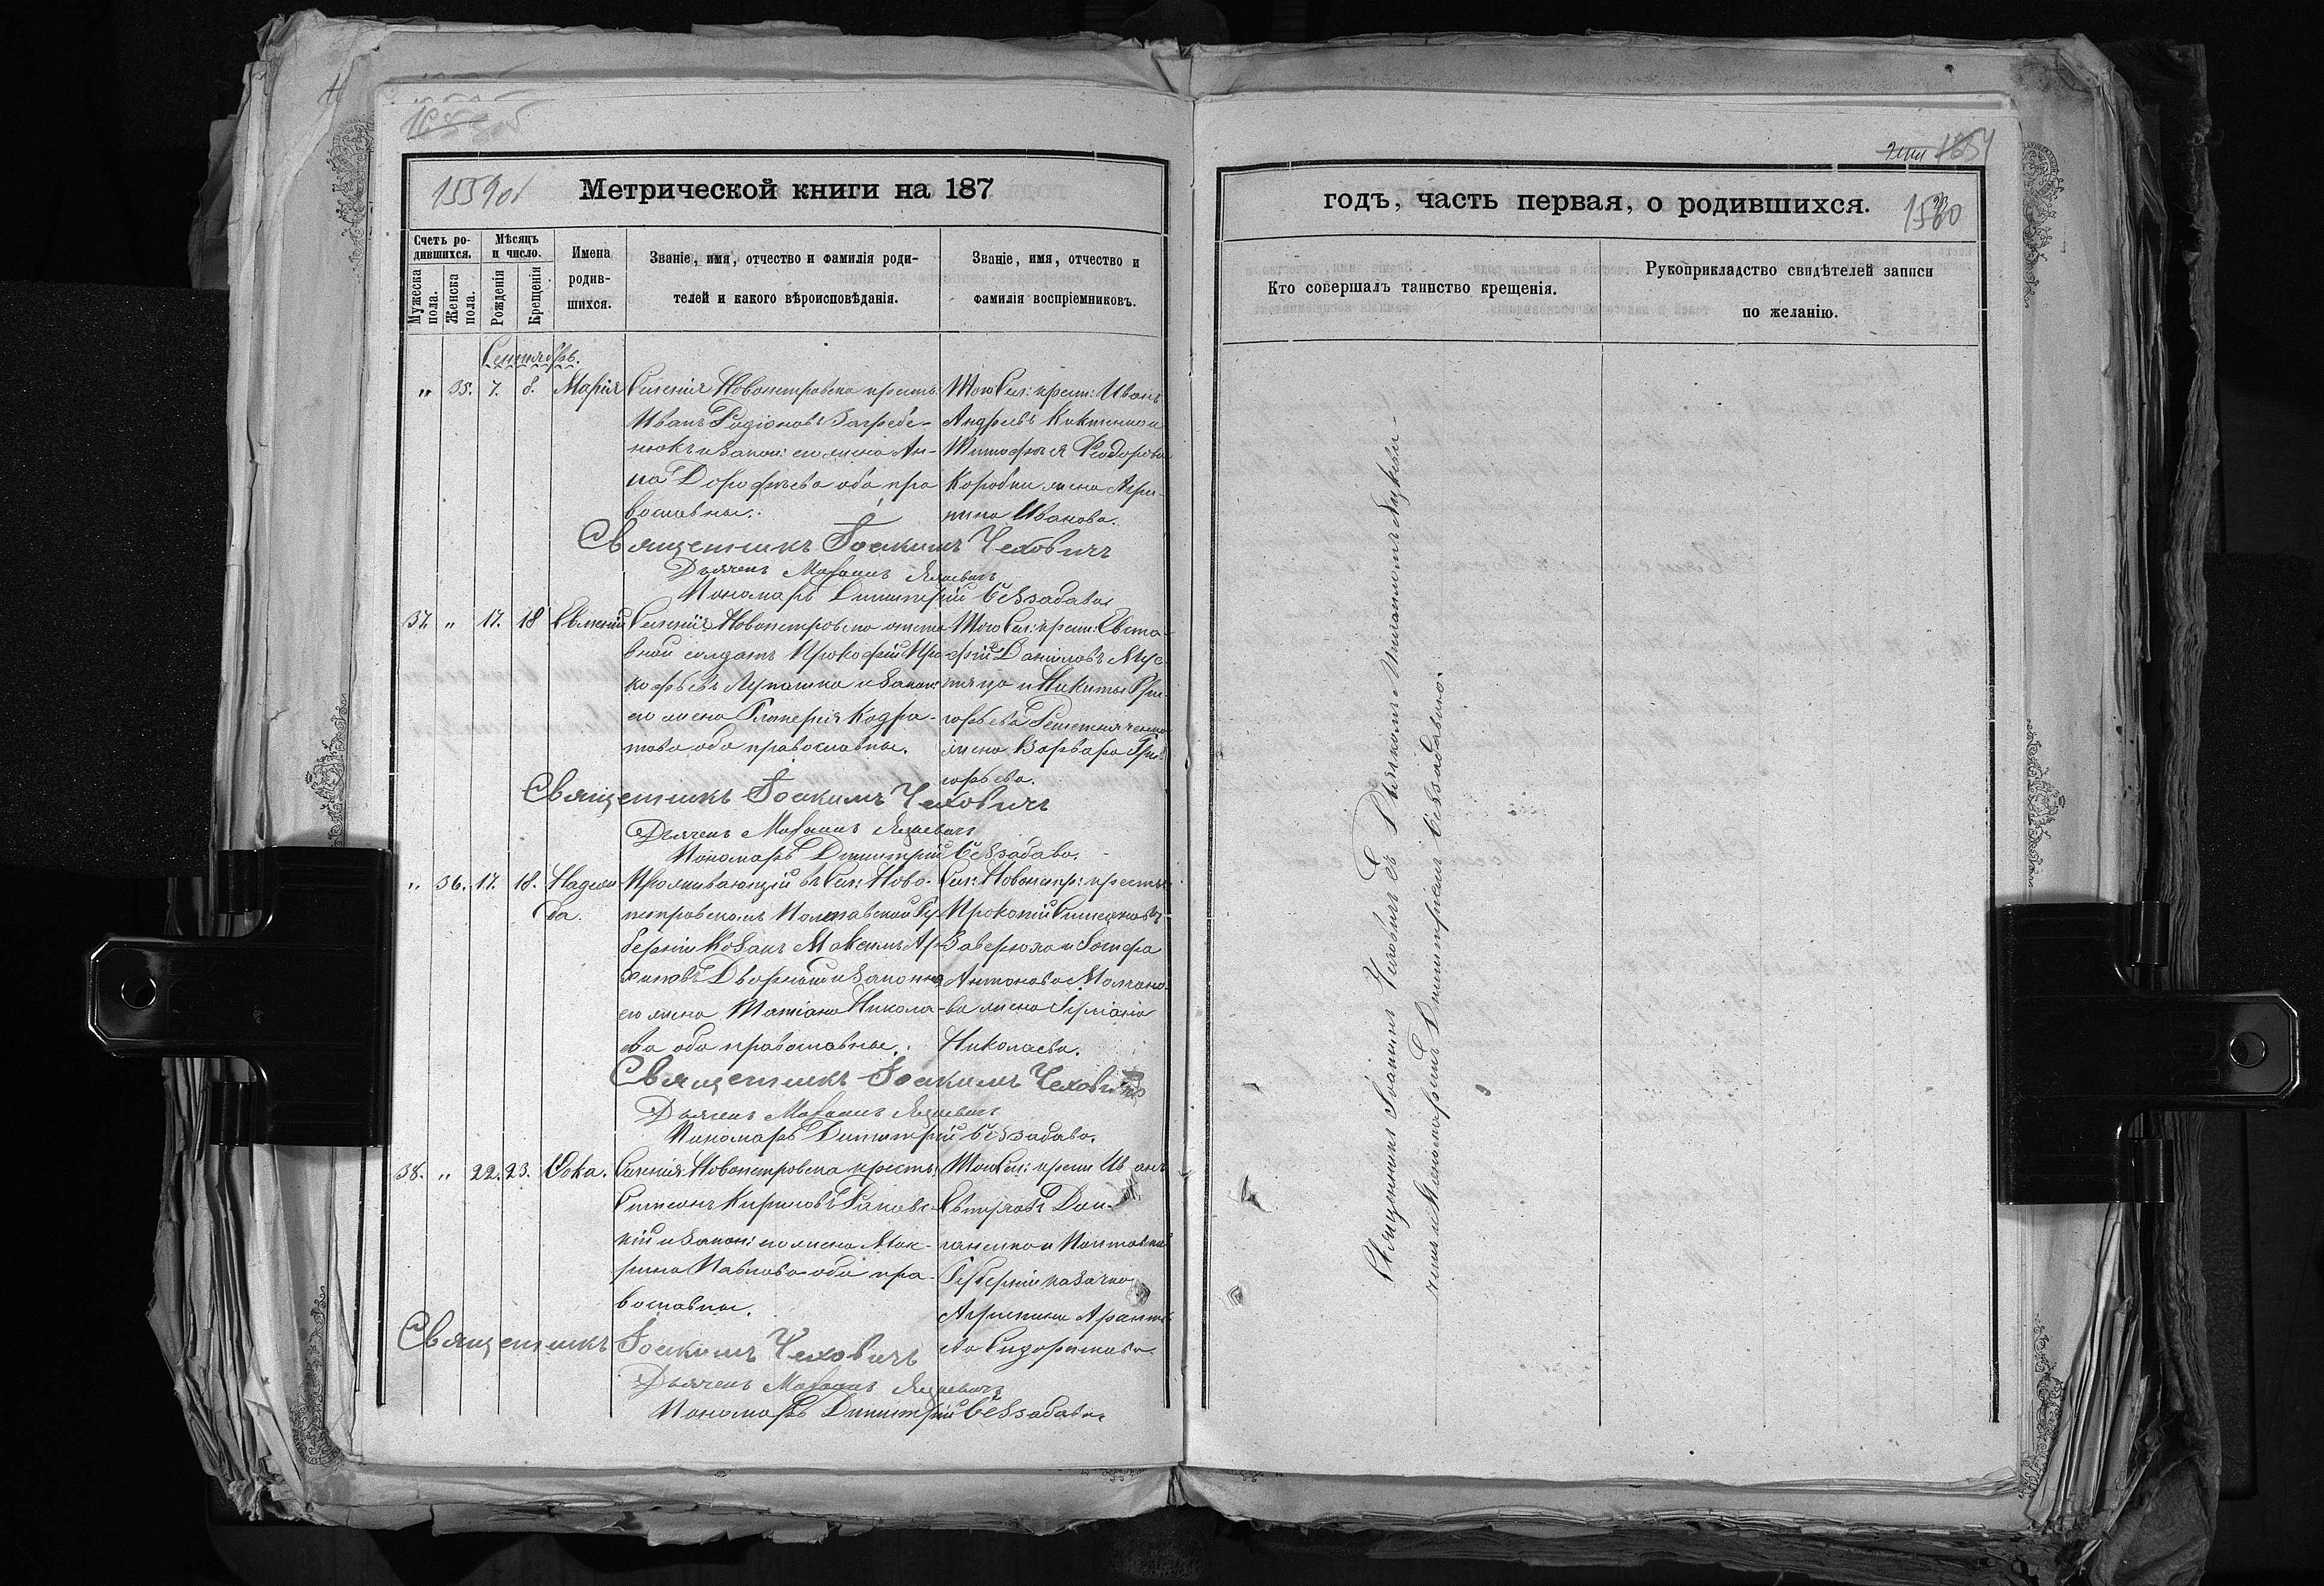 1559об
Метрической книги на 187
Счетъ ро-
дившихся.
Мѣсяцъ
и число.
Мужеска
пола.
Женска
пола.
Рожденія
Крещенія
Имена
родив-
шихся.
Званіе, имя, отчество и фамилія роди-
телей и какого вѣроисповѣданія.
Званіе, имя, отчество и
фамилія воспріемниковъ.
Сентябрь.
" 35. 7. 8. Марія
Селенія Новопетровска крестьян.
Иванъ Родіоновъ Загребе-
нюкъ и закон: его жена Ан-
на Дорофѣева оба пра
вославные.
Того Сел: крест: Иванъ
Андреевъ Киктенко и
Тимофея Феодорова
Коробки жена Агри-
пина Иванова.
Священникъ Іоакимъ Чеховичъ
Дьячекъ
Пономарь Димитрій Беззабава
37. " 17. 18 Евменій
Селенія Новопетровско отста
вной солдатъ Прокофій Про
кофьевъ Лупашко и закон:
его жена Гликерія Кодра-
това оба православные.
Того Сел: крест: Евста-
фій Даніиловъ
и Никиты Гри
горьева
жена Варвара Гри-
горьева.
Священникъ Іоакимъ Чеховичъ
Дьячекъ
Пономарь Димитрій Беззабава.
" 36. 17. 18. Надеж
да.
Проживающій въ Сел: Ново-
петровскомъ Полтавской Гу
берніи Козакъ Максимъ Ар
хиповъ Дворный и законная
его жена Татіана Никола-
ева оба православные.
Сел: Новопетр: крестья
Прокопій Симеоновъ
Заверюха и
Антонова Молчано-
ва жена Іуліанія
Николаева.
Священникъ Іоакимъ Чеховичъ
Дьячекъ
Пономарь Димитрій Беззабава.
38. " 22. 23. Фока.
Селенія Новопетровска крестьян
Симеонъ Кириловъ Раковс-
кій и закон: его жена Мак-
рина Павлова оба пра-
вославные.
Того Сел: крест Иванъ
Евстратовъ Дол-
женко и Полтавской
Губерніи казачка
Агрипина
Сидоренкова.
Священникъ Іоакимъ Чеховичъ
Дьячекъ
Пономарь Димитрій Беззабава
годъ, часть первая, о родившихся.
1560
Кто совершалъ таинство крещенія.
Рукоприкладство свидѣтелей записи
по желанію.
Священникъ Іоакимъ Чеховичъ съ Дьячкомъ
и Пономаремъ Димитріемъ Беззабавою.